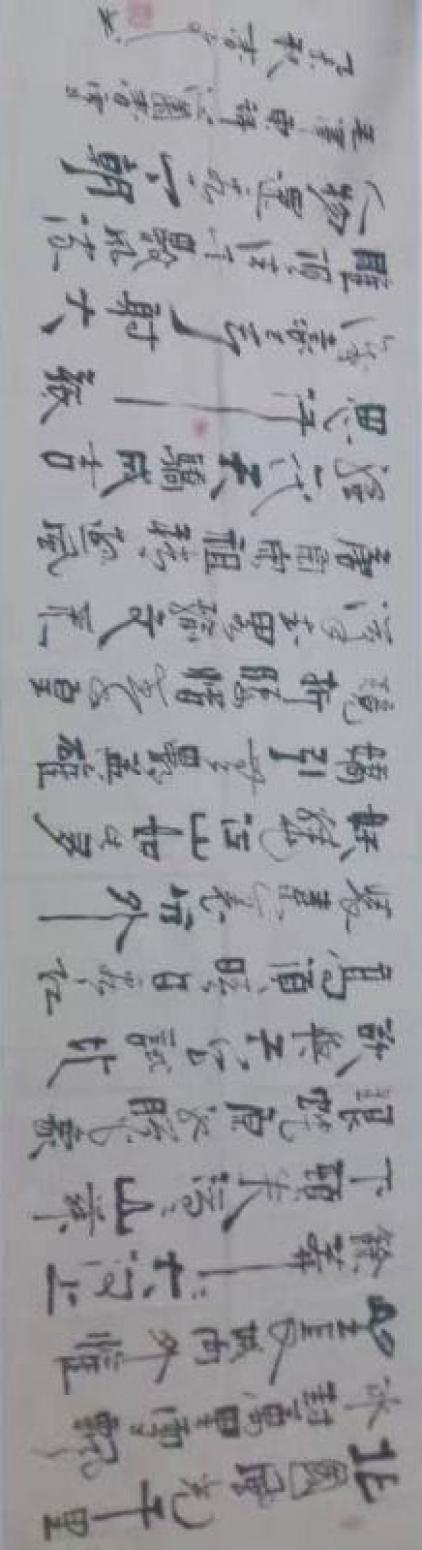 北國風光千里
冰封萬里雪飄
望長城内外惟
餘莽莽大河上
下頓失滔滔山舞
銀蛇原馳臘象
欲與天公試比
高須晴日看紅
裝素裹分外
妖嬈江山如此多
嬌引無數英雄
競折腰惜秦皇
漢武略輸文采
唐宗宋祖稍遜風
騷一代天驕成吉
思汗只識
彎弓射大
雕俱往矣數風流
人物還看今朝
毛澤東詞沁園春雪